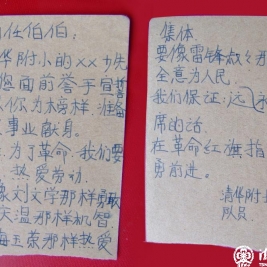 任伯伯：
华附小的××少先
您面前举手宣誓
以你为榜样，准备
事业献身。
为了革命，我们要
热爱劳动
像刘文学那样勇敢
天温那样机智
梅玉荣那样热爱
集体
要像雷锋叔叔那
全意为人民
我们保证：远
席的话
在革命红旗指
勇前进。
清华附
队员